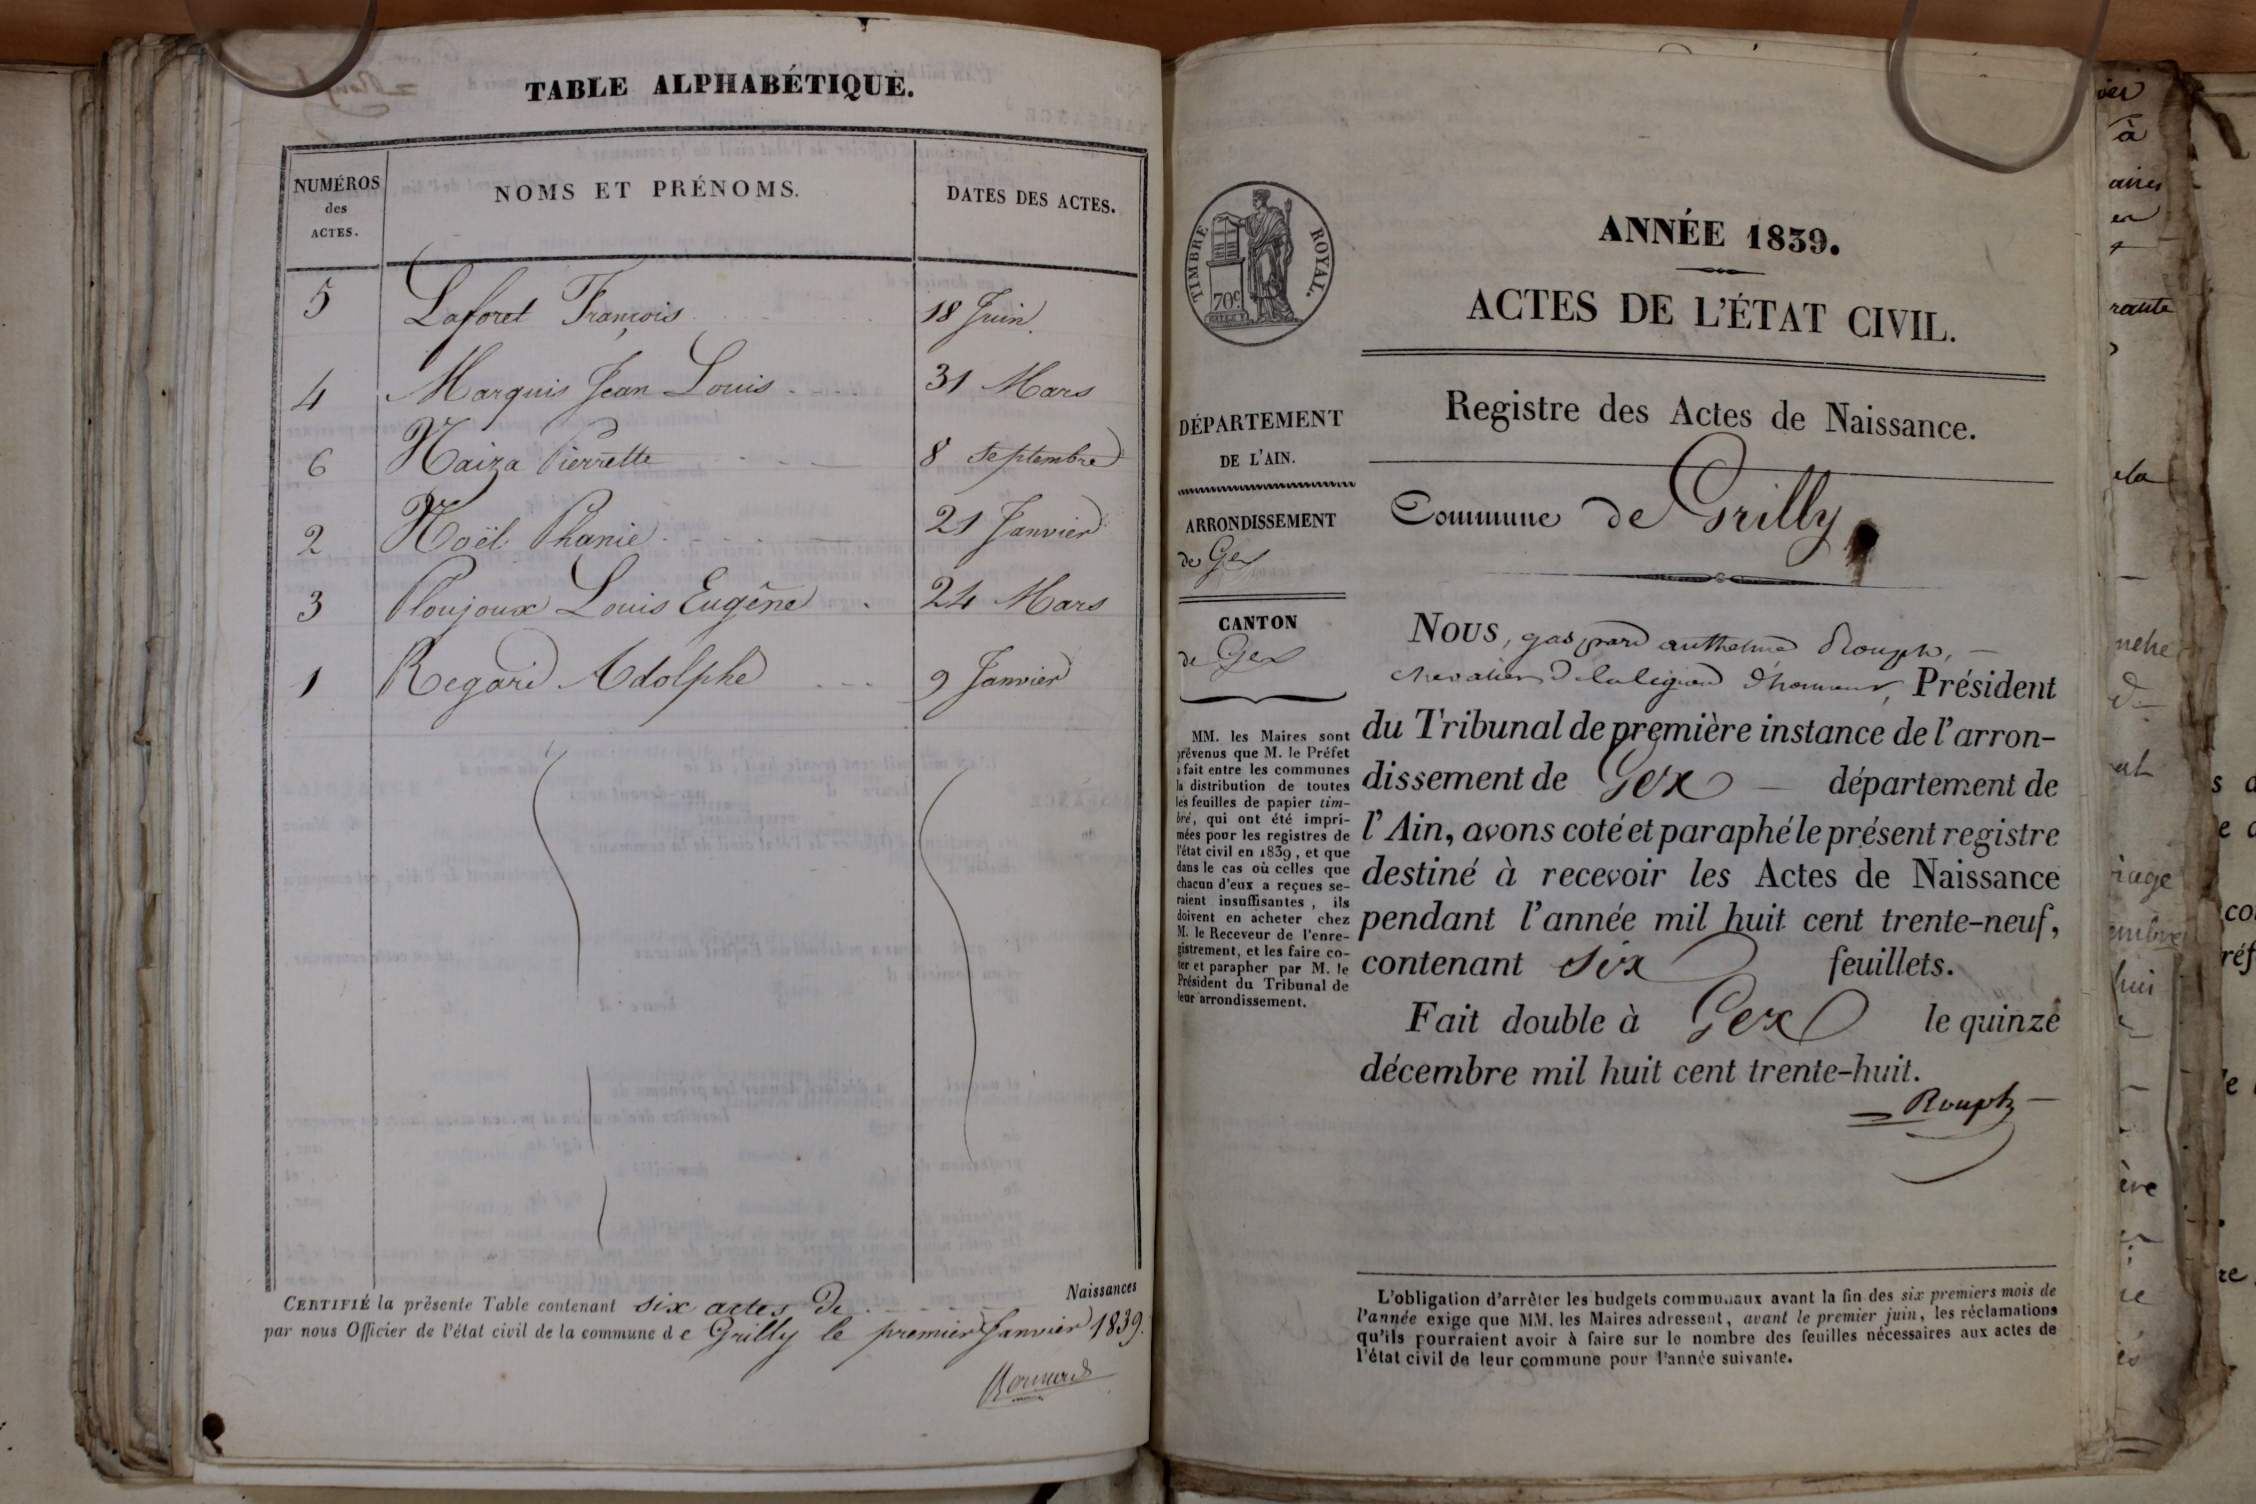 TABLE ALPHABÉTIQUE.
NUMÉROS
des
ACTES.
NOMS ET PRÉNOMS.
DATES DES ACTES.
5 Laforet François 18 Juin.
4 Marquis Jean Louis 31 Mars
6 Naiza Pierrette 8 Septembre
2 Noël Phanie 21 Janvier
3 Ploujoux Louis Eugêne 24 Mars
1 Regard Adolphe 9 Janvier
Naissances
CERTIFIÉ la présente Table contenant six actes De
par nous Officier de l'état civil de la commune de Grilly le premier Janvier 1839.
TIMBRE ROYAL.
70c
ANNÉE 1839.
ACTES DE L'ÉTAT CIVIL.
Registre des Actes de Naissance.
Commune de Grilly
DÉPARTEMENT
DE L'AIN.
ARRONDISSEMENT
de Gex
CANTON
de Gex
MM. les Maires sont
prévenus que M. le Préfet
a fait entre les communes
la distribution de toutes
les feuilles de papier tim-
bré, qui ont été impri-
mées pour les registres de
l'état civil en 1839, et que
dans le cas où celles que
chacun d'eux a reçues se-
raient insuffisantes, ils
doivent en acheter chez
M. le Receveur de l'enre-
gistrement, et les faire co-
ter et parapher par M. le
Président du Tribunal de
leur arrondissement.
NOUS, gaspard anthelme Rouph,
chevalier De la légion D'honneur, Président
du Tribunal de première instance de l'arron-
dissement de Gex département de
l'Ain, avons coté et paraphé le présent registre
destiné à recevoir les Actes de Naissance
pendant l'année mil huit cent trente-neuf,
contenant six feuillets.
Fait double à Gex le quinze
décembre mil huit cent trente-huit.
Rouph
L'obligation d'arrêter les budgets communaux avant la fin des six premiers mois de
l'année exige que MM. les Maires adressent, avant le premier juin, les réclamations
qu'ils pourraient avoir à faire sur le nombre des feuilles nécessaires aux actes de
l'état civil de leur commune pour l'année suivante.